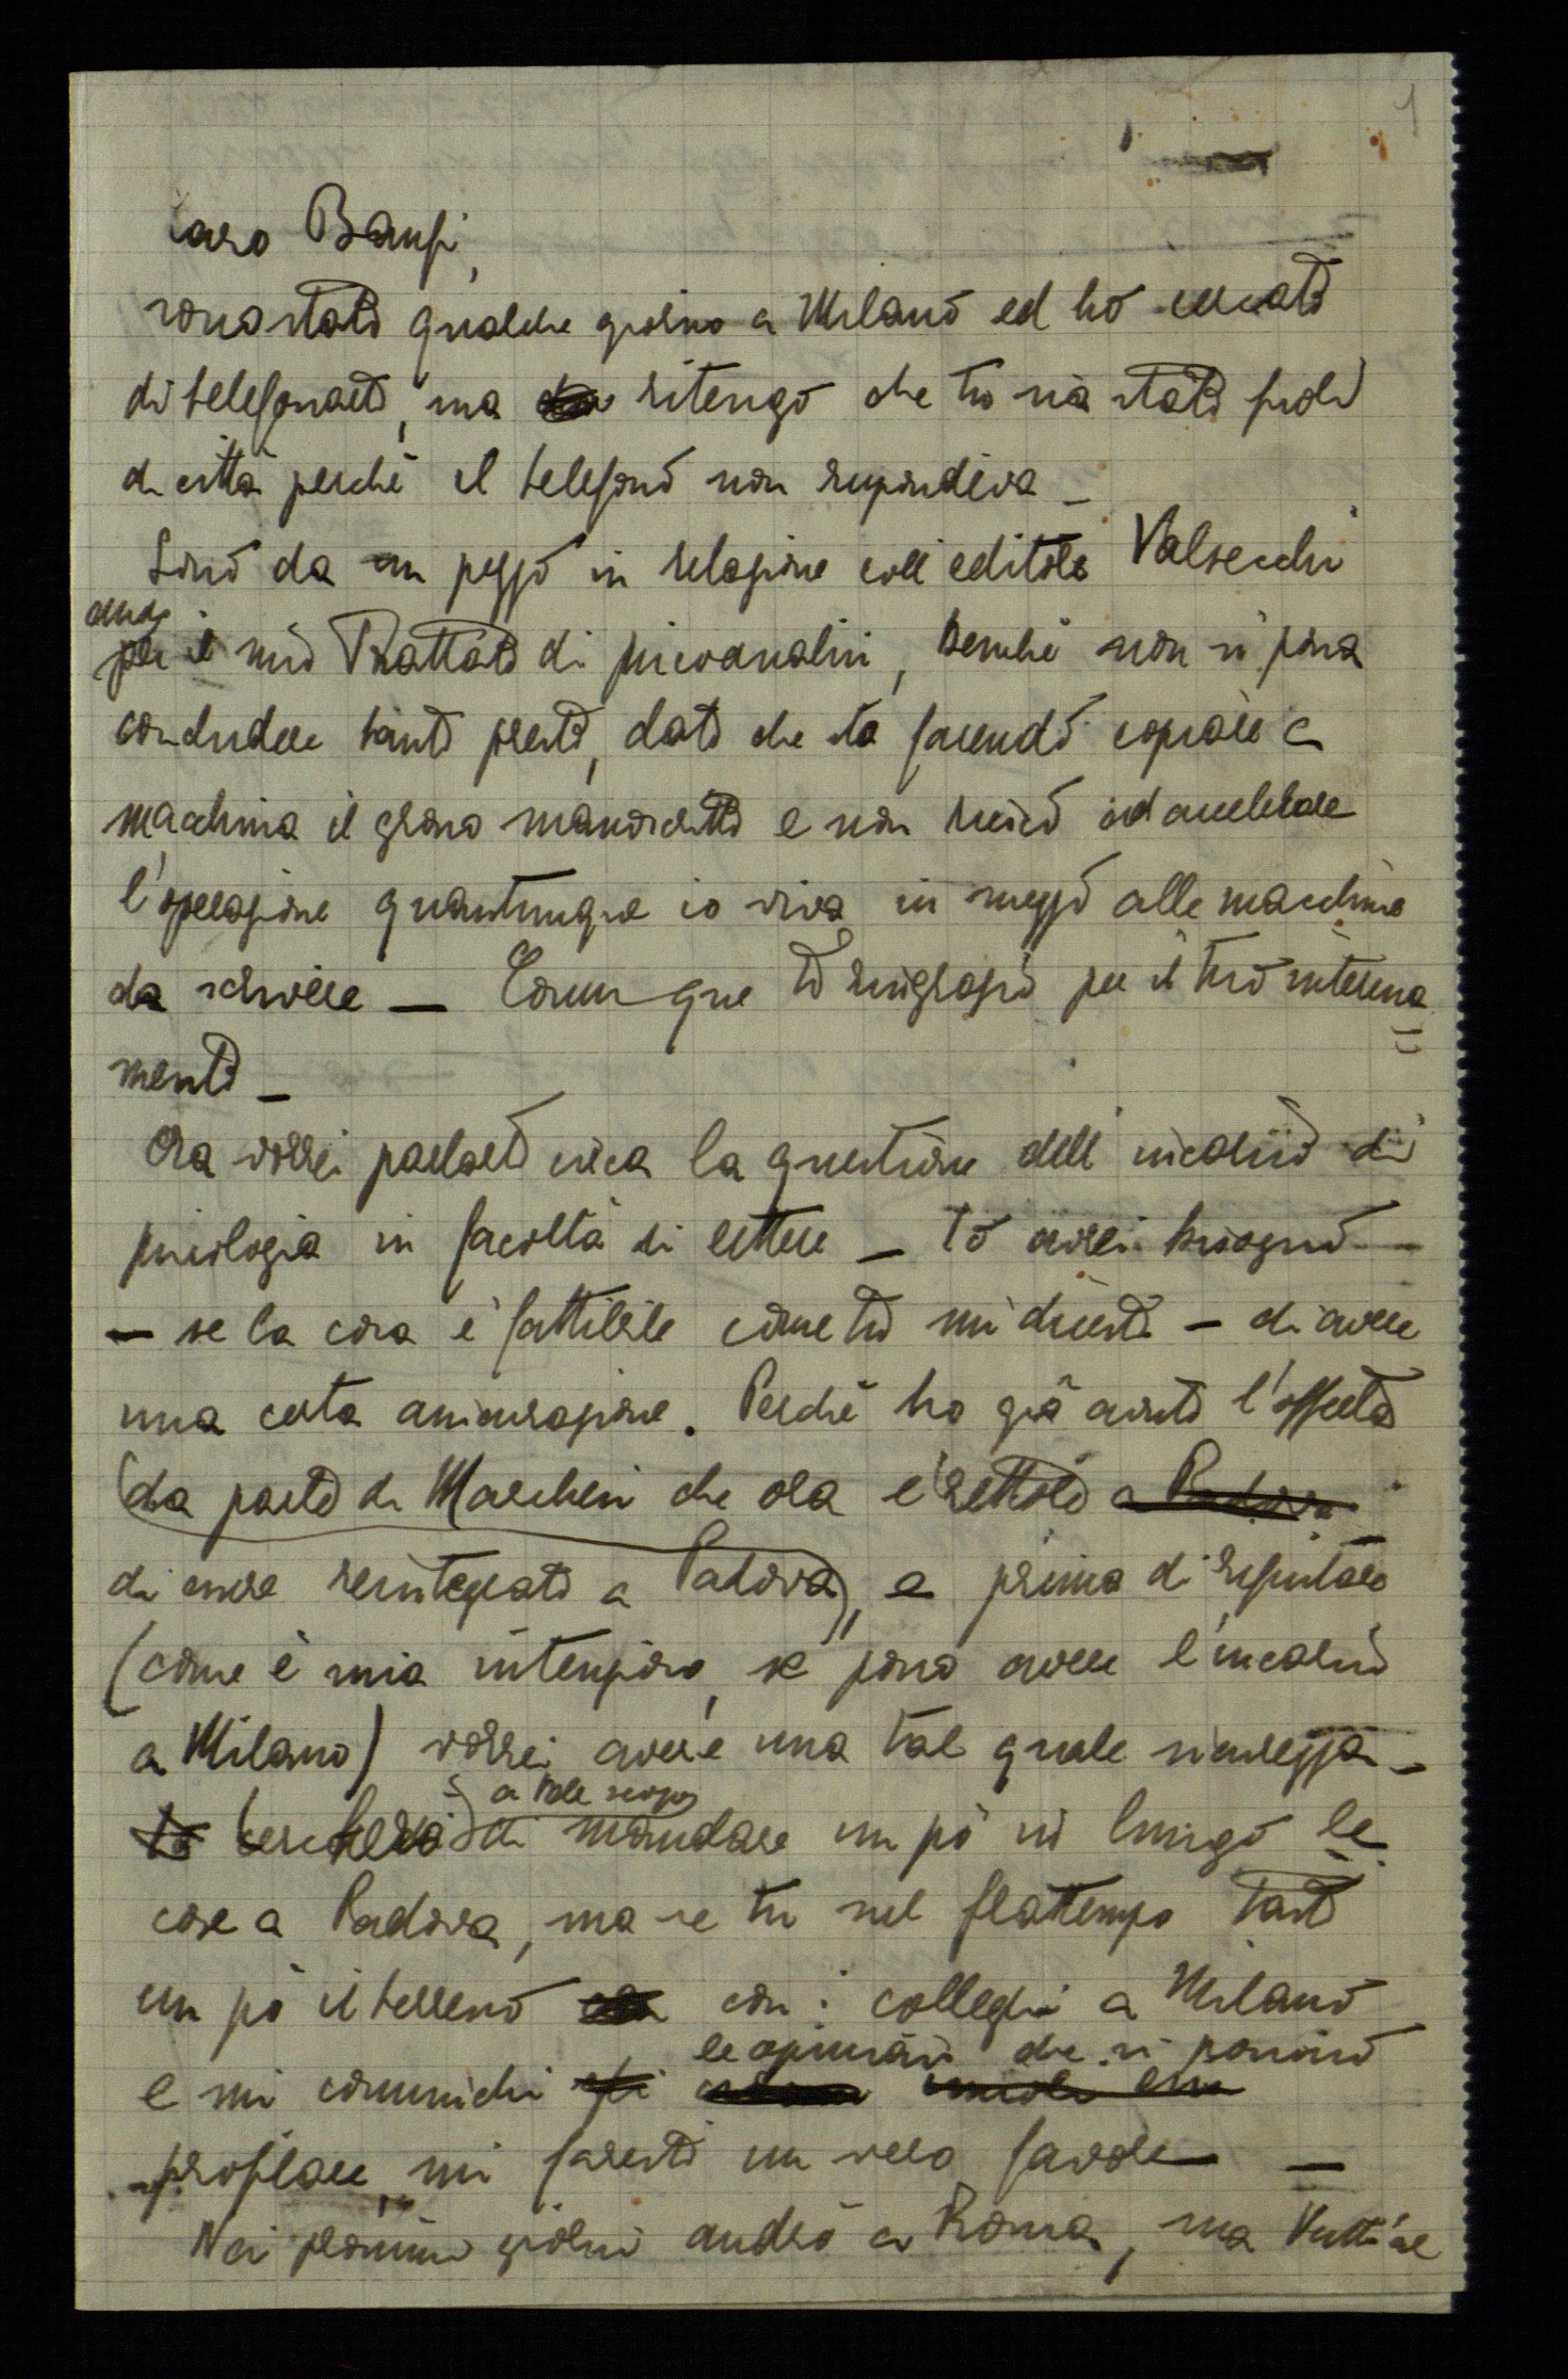 1
Caro Banfi,
sono stato qualche giorno a Milano ed ho cercato
di telefonarti, ma ritengo che tu sia stato fuori
di città perché il telefono non rispondeva _
Sono da un pezzo in relazione coll'editore Valsecchi
anche
per il mio Trattato di psicoanalisi, benché non si possa
concludere tanto presto, dato che sto facendo copiare a
macchina il grosso manoscritto e non riesco ad accelerare
l'operazione quantunque io viva in mezzo alle macchine
da scrivere — Comunque ti ringrazio per il tuo interessa
mento _
Ora vorrei parlarti circa la questione dell'incarico di
psicologia in facoltà di lettere _ Io avrei bisogno —
— se la cosa è fattibile come tu mi dicesti — di avere
una certa assicurazione. Perché ho già avuto l'offerta
(da parte di Marchesi che ora è rettore a Padova
di essere reintegrato a Padova), e prima di rifiutare
(come è mia intenzione, se posso avere l'incarico
a Milano) vorrei avere una tal quale sicurezza _
a tale scopo
Io cercherò di mandare un pò in lungo le
cose a Padova, ma se tu nel frattempo tasti
un pò il terreno con i colleghi a Milano
le opinioni che si possono
e mi comunichi
profilare, mi faresti un vero favore —
Nei prossimi giorni andrò a Roma, ma tutt'al